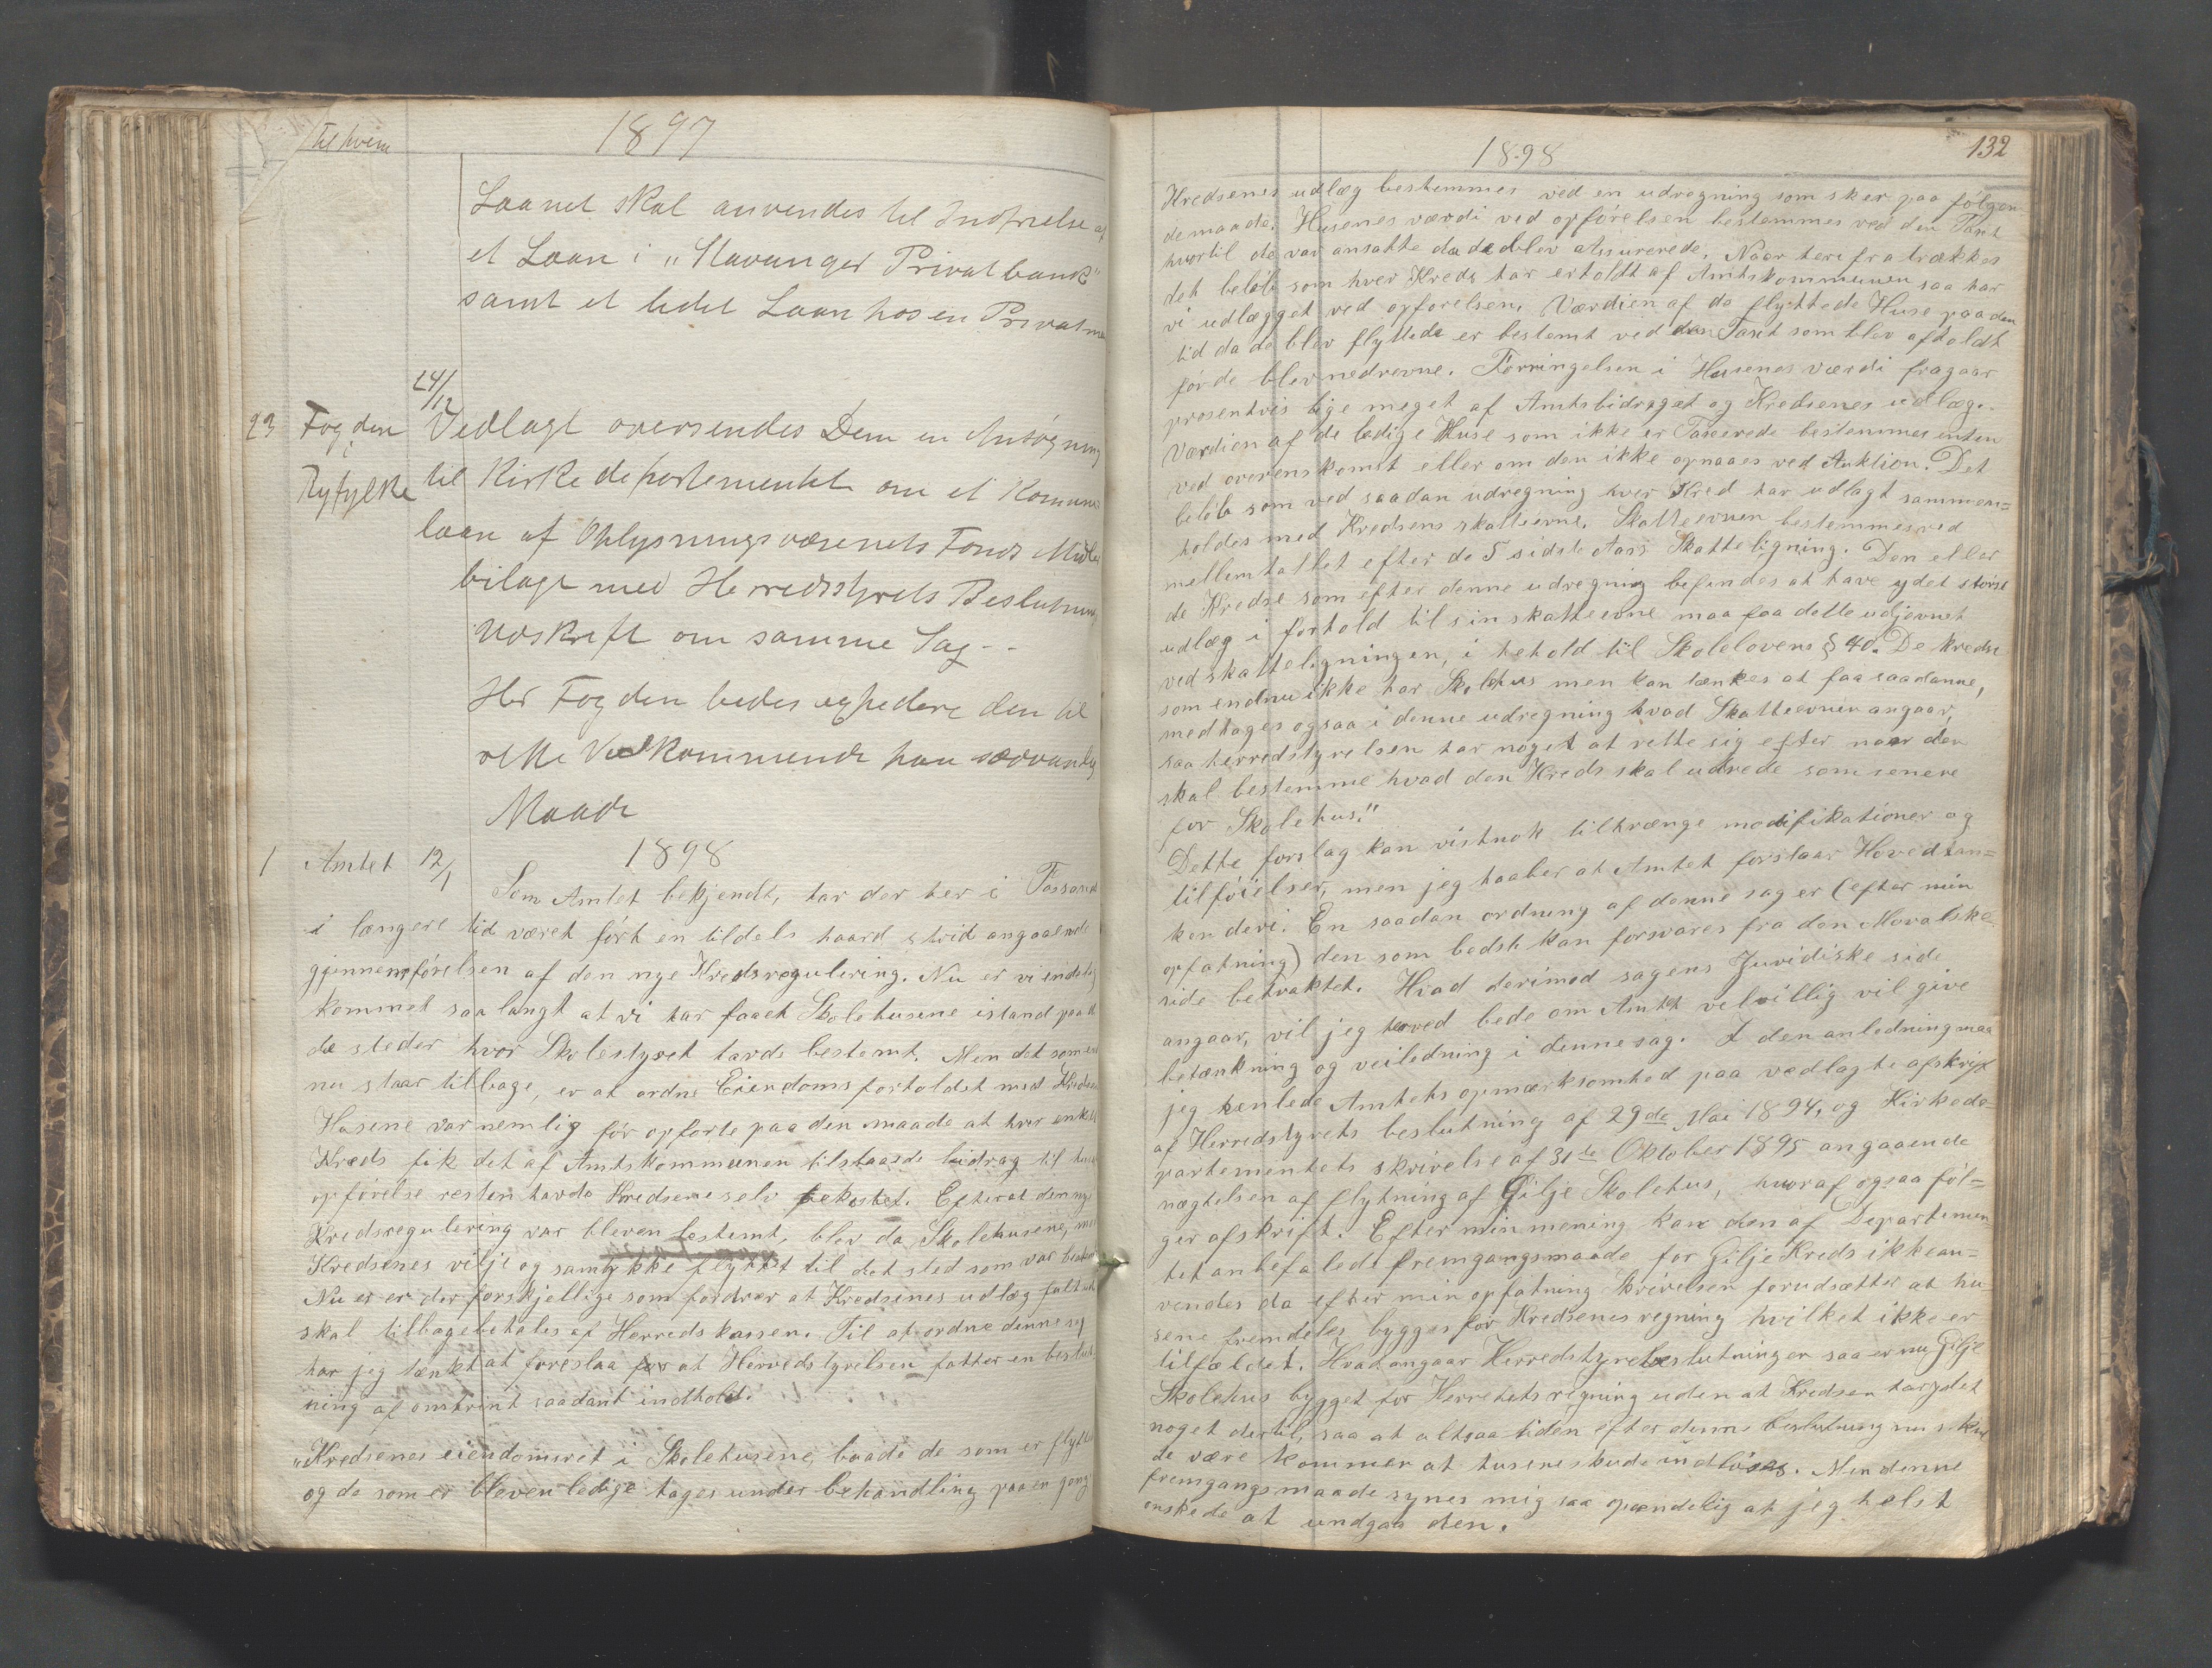 Til hvem
1897
Laanet skal anvendes til Indfrielse af
et Laan i "Stavanger Privatbank"
samt et lidet Laan hos en Privatma
24/12
23 Fogden i Ryfylke
Vedlagt oversendes Dem en Ansøgning
til Kirkedepartementet om et Komune
laan af Oplysningsvæsenets Fonds Midler
bilagt med Herredsstyrets Beslutning
Udskrift om samme Sag --
Hr Fogden bedes expedere den til
rette Vedkommende paa sædvanlig
Maade
1898
1 Amtet 12/1
Som Amtet bekjendt, har der her i Fossand
i længere tid været ført en tildels haard strid angaaende
gjennemførelsen af den nye Kredsregulering. Nu er vi endelig
kommet saa langt at vi har faaet Skolehusene istand paa
de steder hvor Skolestyret havde bestemt. Men det som en
nu staar tilbage, er at ordne Eiendomsforholdet med Kredsen
Husene var nemlig før opførte paa den maade at hver enkelt
Kreds fik det af Amtskommunen tilstaaede bidrag til hus
opførelse resten havde Kredsene selv bekostet. Efterat den nye
Kredsregulering var bleven bestemt, blev da Skolehusene, med
Kredsenes vilje og samtykke flyttet til det sted som var bestemt
Nu er er der forskjellige som fordrer at Kredsenes udlæg
skal tilbagebetales af Herredskassen. Til at ordne denne sag
har jeg tænkt at foreslaa for at Herredstyrelsen fatter en beslut
ning af omtrent saadant indhold.
"Kredsenes eiendomsret i Skolehusene, baade de som er flytte
og de som er bleven ledige tages under behandling paa en gang
132
1898
Kredsenes udlæg bestemmes ved en udregning som sker paa følgen
de maade. Husenes værdi ved opførelsen bestemmes ved den Taxt
hvortil de var ansatte da de blev assurerede. Naar herifra trækkes
det beløb som hver Kreds har erholdt af Amtskommunen saa har
vi udlægget ved opførelsen. Værdien af de flyttede Huse paa den
tid da de blev flyttede er bestemt ved den Taxt som blev afholdt
før de blev nedrevne. Forringelsen i Husenes værdi fragaar
prosentvis lige meget af Amtsbidraget og Kredsenes udlæg.
Værdien af de ledige Huse som ikke er Taxerede bestemmes enten
ved overenskomst eller om den ikke opnaaes ved Auktion. Det
beløb som ved saadan udregning hver Kred har udlagt sammen=
holdes med Kredsens skatteevne. Skatteevnen bestemmes ved
mellemtallet efter de 5 sidste Aars Skatteligning. Den eller
de Kredse som efter denne udregning befindes at have ydet størst
udlæg i forhold til sin skatteevne maa faa dette udjevnet
ved skatteligningen, i hehold til Skolelovens § 40. De kredse
som endnu ikke har Skolehus men kan tænkes at faa saadanne,
medtages ogsaa i denne udregning hvad Skatteevnen angaar,
saa herredstyrelsen har noget at rette sig efter naar den
skal bestemme hvad den Kreds skal udrede som senere
for Skolehus."
Dette forslag kan vistnok tiltrænge modifikationer og
tilføielser, men jeg haaber at Amtet forstaar Hovedtan=
ken deri. En saadan ordning af denne sag er (efter min
opfatning) den som bedst kan forsvares fra den Moralske
side betraktet. Hvad derimod sagens Juridiske side
angaar, vil jeg herved bede om Amtet velvillig vil give
betænkning og veiledning i denne sag. I den anledning maa
jeg henlede Amtets opmærksomhed paa vedlagte afskrift
af Herredstyrets beslutning af 29de Mai 1894, og Kirkede=
partementets skrivelse af 31te Oktober 1895 angaaende
nægtelsen af flytning af Gilje Skolehus, hvoraf ogsaa føl=
ger afskrift. Efter min mening kan den af Departemen
tet anbefalede fremgangsmaade for Gilje Kreds ikke an=
vendes da efter min opfatning skrivelsen forudsætter at hu
sene fremdeles bygges for Kredsenes regning hvilket ikke er
tilfældet. Hvad angaar Herredstyrebeslutninger saa er nu Gilje
Skolehus bygget for Herredets regning uden at Kredsen har ydet
noget dertil, saa at altsaa tiden efter denne beslutning nu skul
de være kommen at husene skude indløses. Men denne
fremgangsmaade synes mig saa opændelig at jeg helst
ønskede at undgaa den.